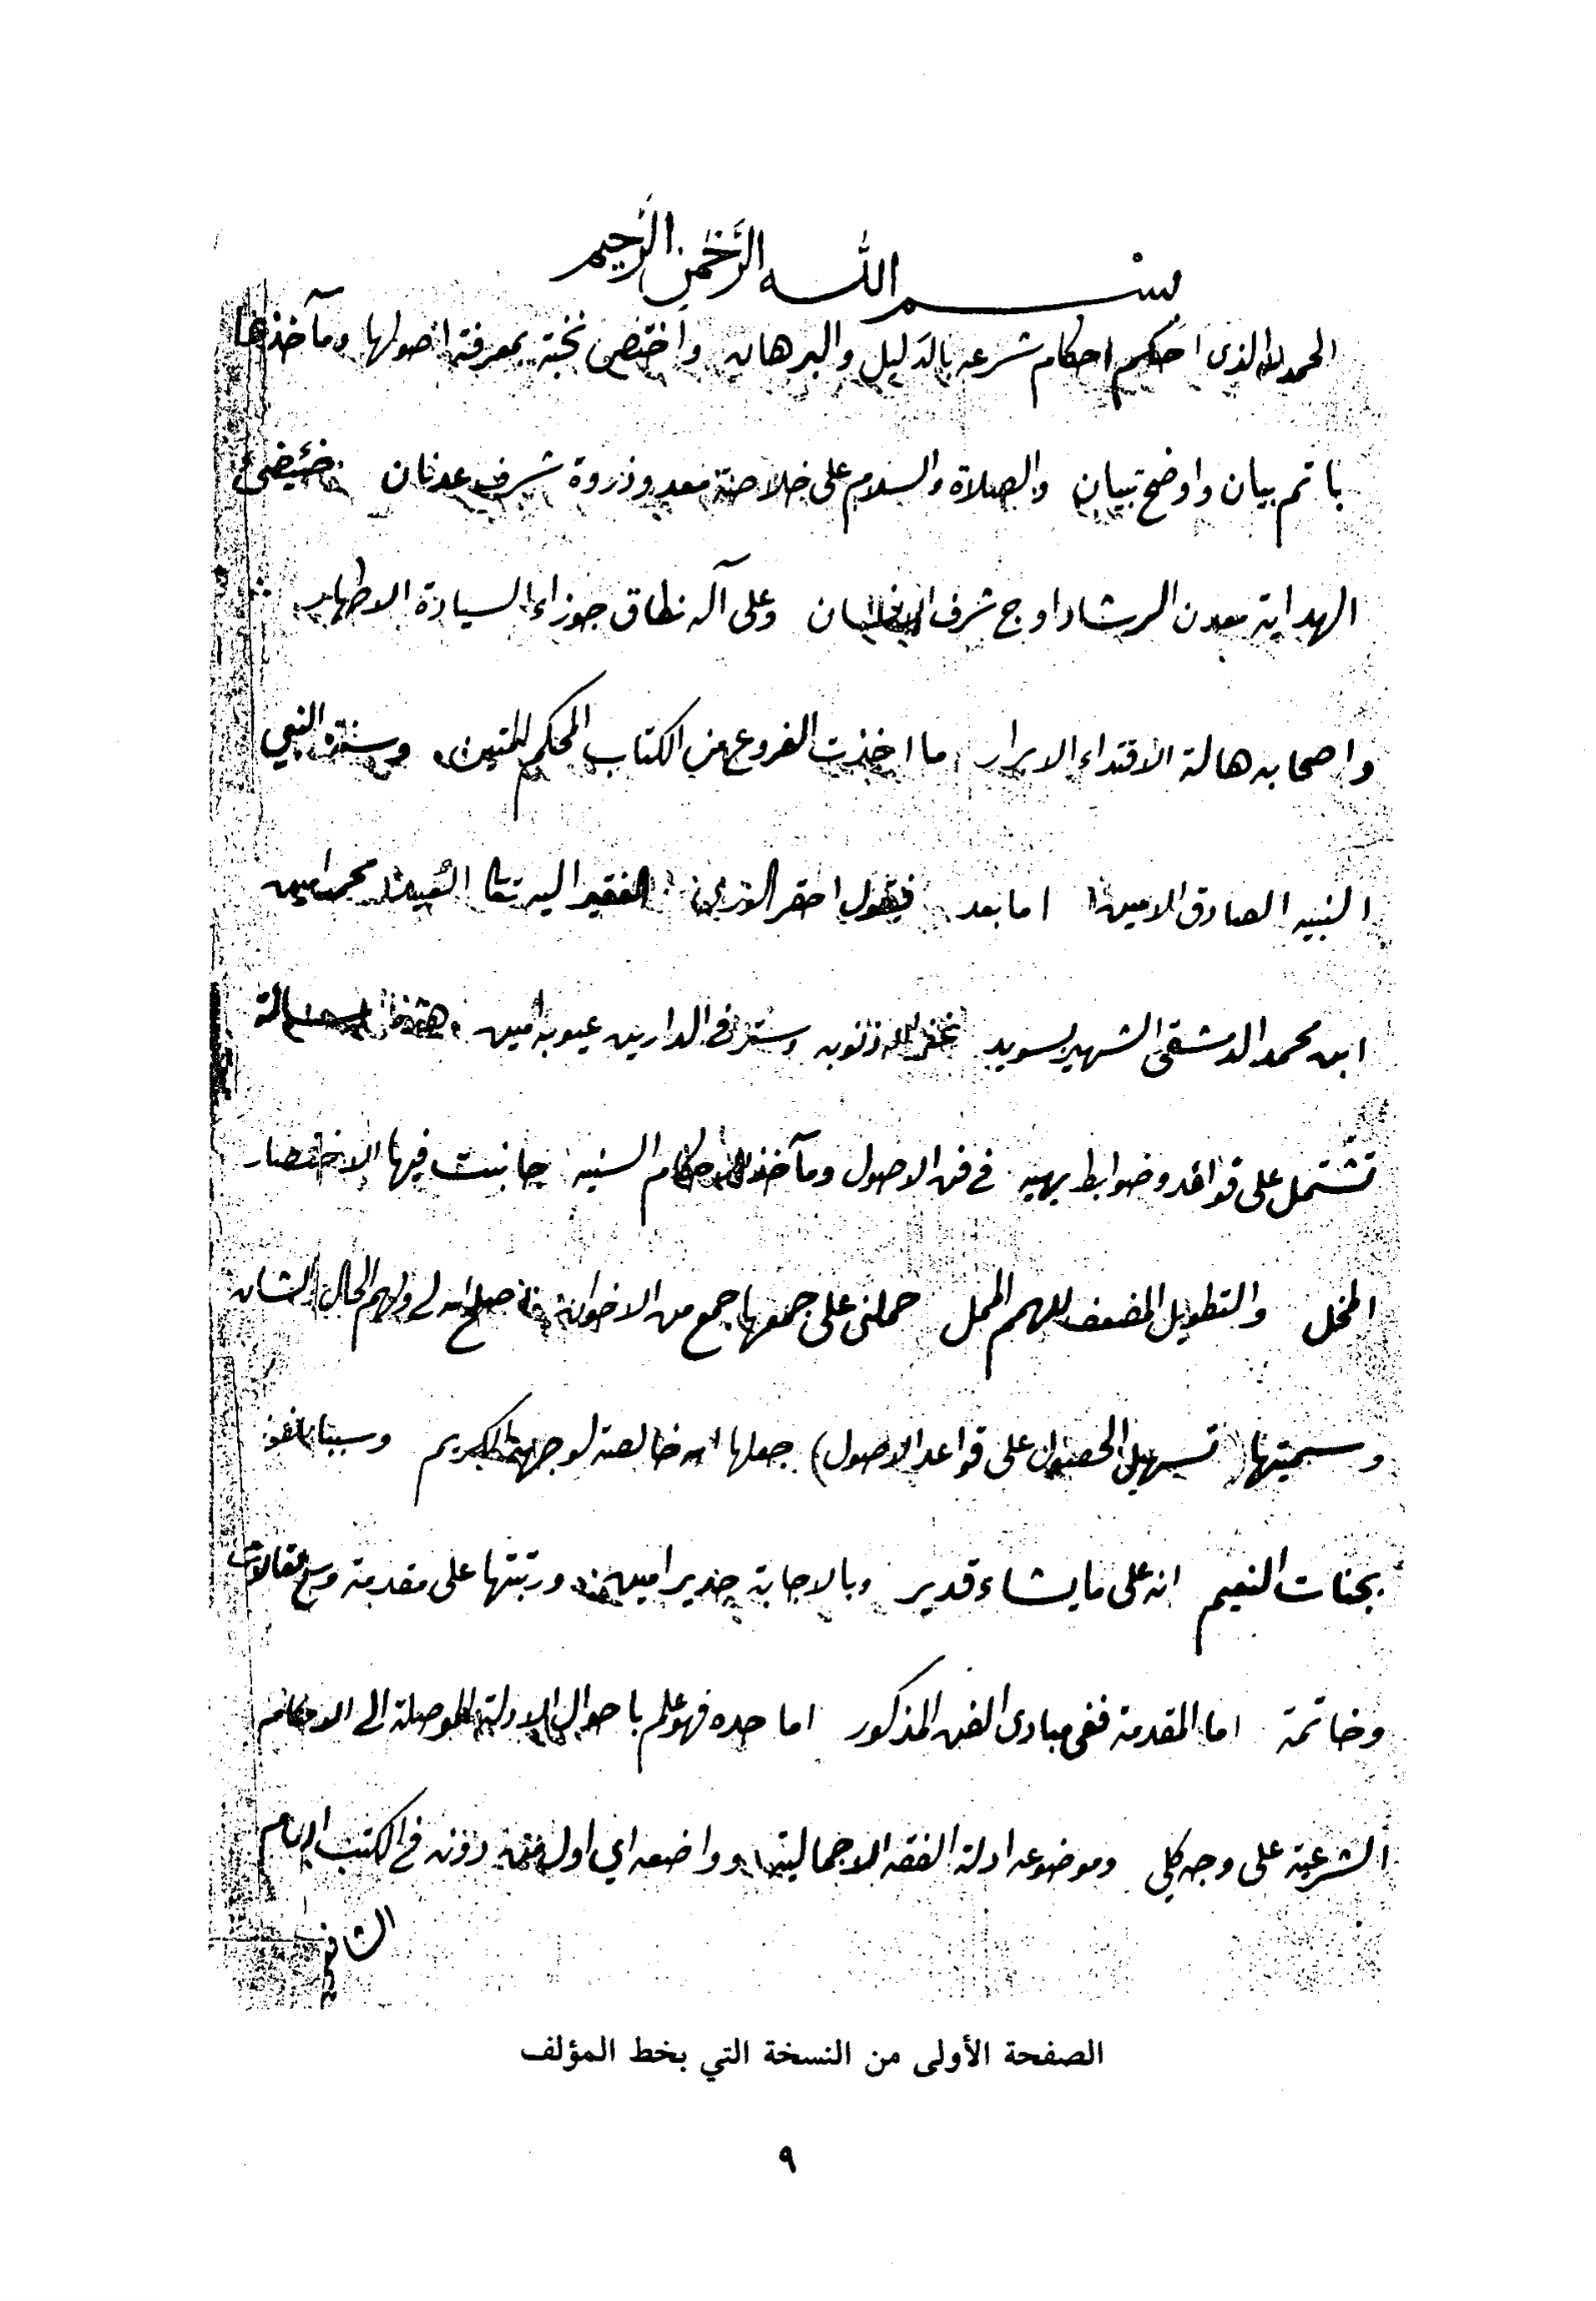 بسم الله الرحمن الرحيم
الحمد لله الذى احكم احكام شرعه بالدليل والبرهان واختص نخبة بمعرفة اصولها ومآخذها
باتم بيان واوضح تبيان والصلاة والسلام على خلاصة معد وذروة شرف عدنان
الهداية معدن الرشاد اوج شرف الانسان وعلى آله نطاق جوزاء السيادة الاطهار
واصحابه هالة الاقتداء الابرار ما اخذت الفروع من الكتاب المحكم المتين وسنة النبي
النبيه الصادق الامين اما بعد فيقول احقر الورى الفقير اليه تعالى محمد امين
ابن محمد الدمشقى الشهير بسويد غفر الله ذنوبه وستر فى الدارين عيوبه امين هذه رسالة
تشتمل على قواعد وضوابط بهيه فى فن الاصول ومآخذ الاحكام السنيه جانبت فيها الاختصار
المخل والتطويل المضعف للهمم الممل حملنى على جمعها جمع من الاخوان اصلح الله لي ولهم الحال والشان
وسميتها (تسهيل الحصول على قواعد الاصول) جعلها الله خالصة لوجهه الكريم وسببا للفوز
بجنات النعيم انه على ما يشاء قدير وبالاجابة جدير امين ورتبتها على مقدمة وسبع مقالات
وخاتمة اما المقدمة ففى مبادى الفن المذكور اما حده فهو علم باحوال الادلة الموصلة الى الاحكام
الشرعية على وجه كلي وموضوعه ادلة الفقه الاجمالية وواضعه اي اول من دونه فى الكتب الامام
الشافعي
الصفحة الأولى من النسخة التي بخط المؤلف
٩